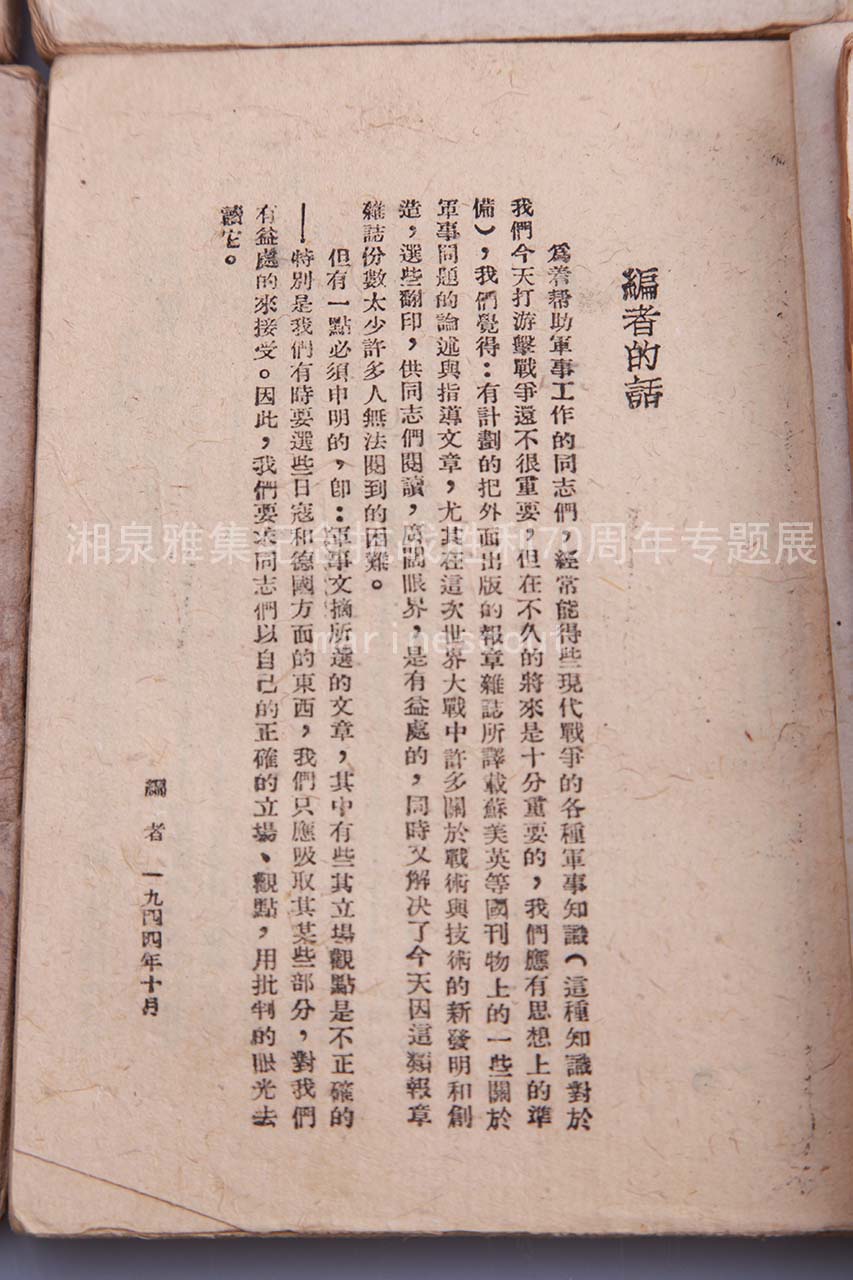 編者的話
爲着帮助軍事工作的同志們，經常能得些現代戰爭的各種軍事知識（這種知識對於
我們今天打游擊戰爭還不很重要，但在不久的將來是十分重要的，我們應有思想上的準
備），我們覺得：有計劃的把外面出版的報章雜誌所譯載蘇美英等國刊物上的一些關於
軍事問題的論述與指導文章，尤其在這次世界大戰中許多關於戰術與技術的新發明和創
造，選些翻印，供同志們閱讀，廣闊眼界，是有益處的，同時又解决了今天因這類報章
雜誌份數太少許多人無法閱到的困難。
但有一點必須申明的，卽：軍事文摘所選的文章，其中有些其立場觀點是不正確的
——特別是我們有時要選些日寇和德國方面的東西，我們只應吸取其某些部分，對我們
有益處的來接受。因此，我們要求同志們以自己的正確的立場、觀點，用批判的眼光去
讀它。
編者 一九四四年十月
湘泉雅集
70周年专题展
marinestory